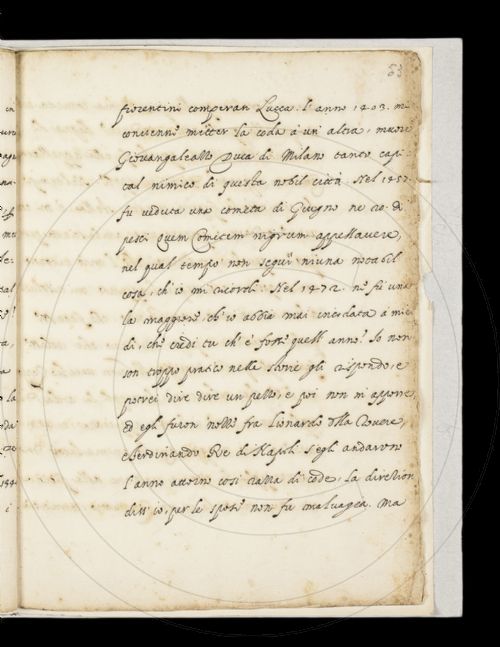 53
fiorentini comperan Lucca. l'anno 1403. mi
conuienne metter la coda à un' altra, muore
Giouangaleazzo Duca di Milano tanto capi-
tal nimico di questa nobil città. Nel 1457.
fu veduta una cometa di Giugno ne 20. di
pesci quem Cometem nigrum appellauere,
nel qual tempo non seguì niuna notabil
cosa, ch' io mi ricordi. Nel 1472. ne fù una
la maggiore ch' io abbia mai
di, che credi tu ch' e fosse quell' anno. Io non
son troppo pratico nelle storie gli rispondo, e
potrei dire dire un pesso, e poi non m'apporre,
ed egli furon nozze fra Lionardo della Rouere,
e Ferdinando Re di Napoli s'egli andarono
l'anno attorno cosi fatta di code, la direction
diss' io, per le spose non fu maluagia. Ma